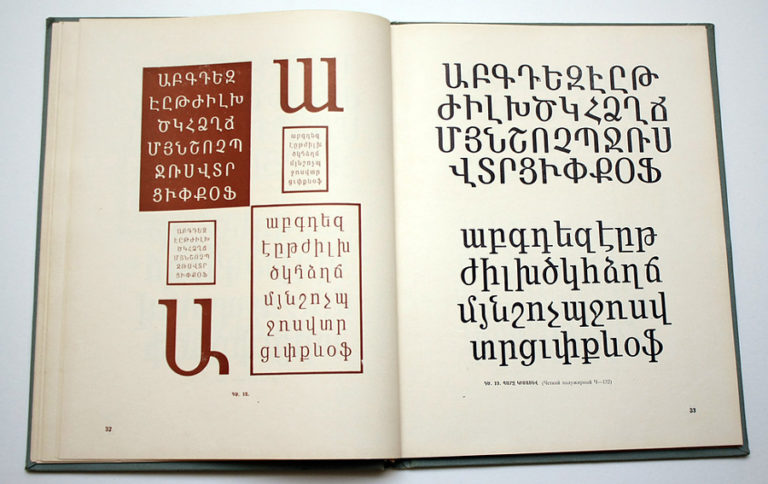 ԱԲԳԴԵԶ
ԷԸԹԺԻԼԽ
ԾԿՀՁՂՃ
ՄՅՆՇՈՉՊ
ՋՌՍՎՏՐ
ՑՒՓՔՕՖ
ա
աբգդեզ
էըթժիլխ
ծկհձղճ
մյնշոչպ
ջռսվտր
ցւփքևօֆ
ԱԲԳԴԵԶ
ԷԸԹԺԻԼԽ
ԾԿՀՁՂՃ
ՄՅՆՇՈՉՊ
ՋՌՍՎՏՐ
ՑՒՓՔՕՖ
Ա
աբգդեզ
էըթժիլխ
ծկհձղճ
մյնշոչպ
ջռսվտր
ցւփքևօֆ
12.
32
ԱԲԳԴԵԶԷԸԹ
ԺԻԼԽԾԿՀՁՂՃ
ՄՅՆՇՈՉՊՋՌՍ
ՎՏՐՑՒՓՔՕՖ
աբգդեզէըթ
ժիլխծկհձղճ
մյնշոչպջռսվ
տրցւփքևօֆ
13. (Четкий полужирный Ч—132)
33